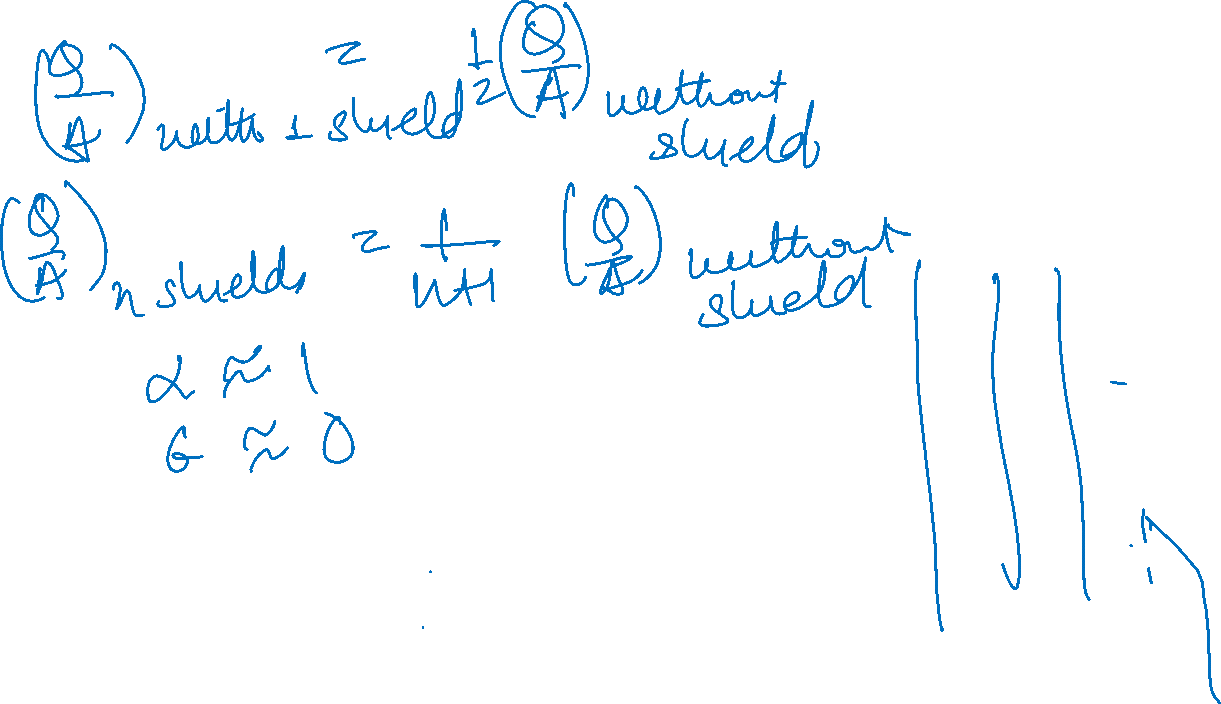 (Q/A) with 1 shield = 1/2 (Q/A) without shield
(Q/A) n shields = 1/n+1 (Q/A) without shield
α ≈ 1
ϵ ≈ 0